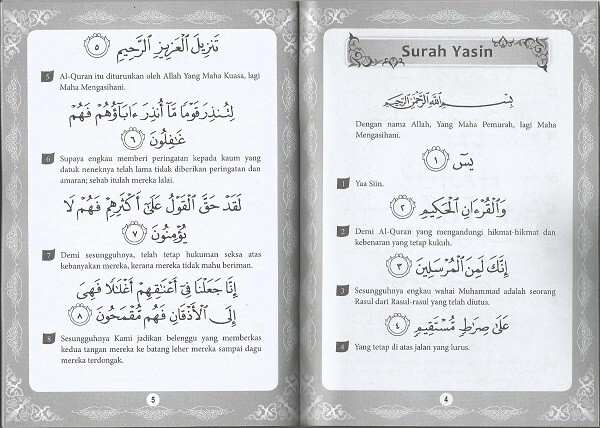 Surah Yasin
بِسْمِ ٱللَّهِ ٱلرَّحْمَٰنِ ٱلرَّحِيمِ
Dengan nama Allah, Yang Maha Pemurah, lagi Maha
Mengasihani.
يسٓ ١
1 Yaa Siin.
وَٱلْقُرْءَانِ ٱلْحَكِيمِ ٢
2 Demi Al-Quran yang mengandungi hikmat-hikmat dan
kebenaran yang tetap kukuh.
إِنَّكَ لَمِنَ ٱلْمُرْسَلِينَ ٣
3 Sesungguhnya engkau wahai Muhammad adalah seorang
Rasul dari Rasul-rasul yang telah diutus.
عَلَىٰ صِرَٰطٍ مُّسْتَقِيمٍ ٤
4 Yang tetap di atas jalan yang lurus.
4
تَنزِيلَ ٱلْعَزِيزِ ٱلرَّحِيمِ
٥
5 Al-Quran itu diturunkan oleh Allah Yang Maha Kuasa, lagi
Maha Mengasihani.
لِتُنذِرَ قَوْمًا مَّآ أُنذِرَ ءَابَآؤُهُمْ فَهُمْ
غَٰفِلُونَ ٦
6 Supaya engkau memberi peringatan kepada kaum yang
datuk neneknya telah lama tidak diberikan peringatan dan
amaran; sebab itulah mereka lalai.
لَقَدْ حَقَّ ٱلْقَوْلُ عَلَىٰٓ أَكْثَرِهِمْ فَهُمْ لَا
يُؤْمِنُونَ ٧
7 Demi sesungguhnya, telah tetap hukuman seksa atas
kebanyakan mereka, kerana mereka tidak mahu beriman.
إِنَّا جَعَلْنَا فِىٓ أَعْنَٰقِهِمْ أَغْلَٰلًا فَهِىَ
إِلَى ٱلْأَذْقَانِ فَهُم مُّقْمَحُونَ ٨
8 Sesungguhnya Kami jadikan belenggu yang memberkas
kedua tangan mereka ke batang leher mereka sampai dagu
mereka terdongak.
5